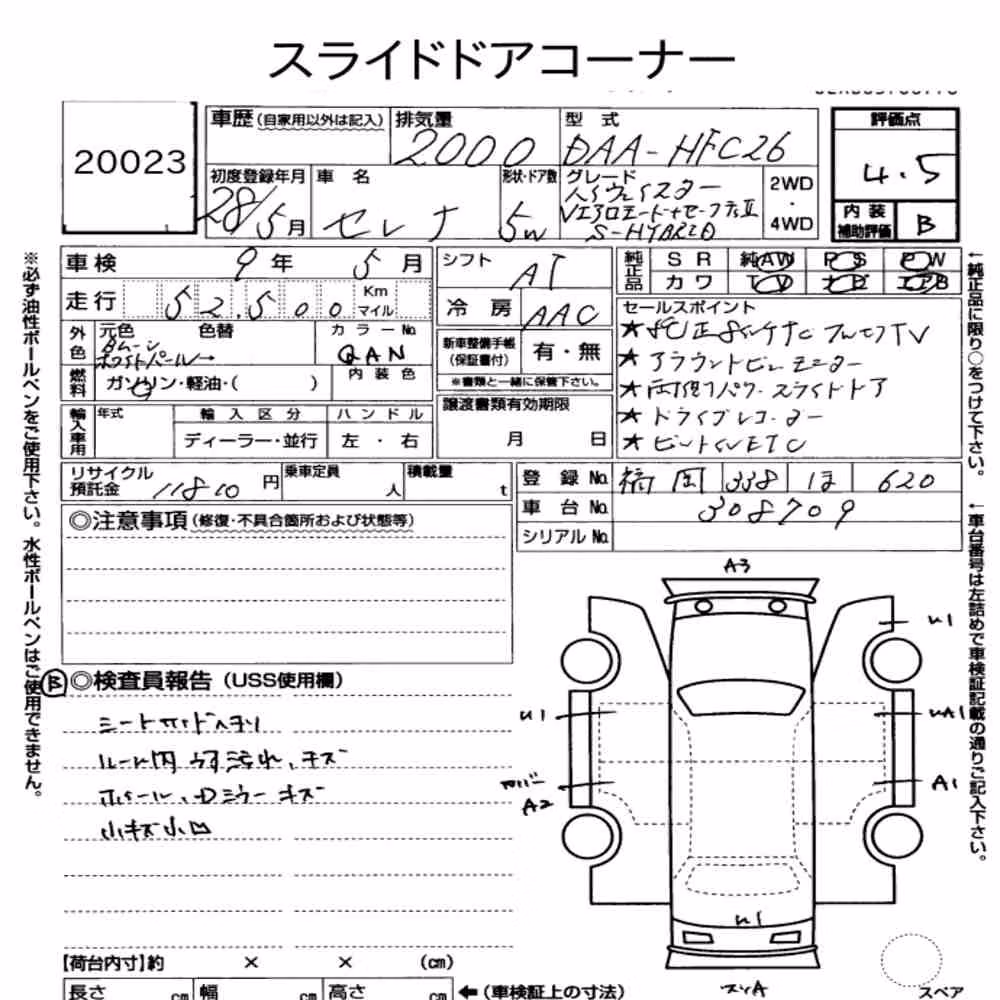 スライドドアコーナー
20023
車歴 (自家用以外は記入) 排気量 2000 型式 DAA-HFC26
評価点 4.5
初度登録年月 28/5月 車名 セレナ 形状・ドア数 5W グレード ハイウェイスター
Vエアロモード+セーフティⅡ
S-HYBRID
2WD
・
4WD
内装補助評価 B
車検 9年 5月
シフト AT
純正品 SR 純AW PS PW
カワ TV ナビ エアB
走行 52,500 Km マイル
冷房 AAC
セールスポイント
外色 元色 色替 カラーNo. QAN
ホワイトパール
★純正8インチナビフルセグTV
★アラウンドビューモニター
★両側パワースライドドア
★ドライブレコーダー
★ビルトインETC
新車整備手帳 (保証書付) 有・無
※書類と一緒に保管下さい。
燃料 ガソリン・軽油・( ) 内装色
譲渡書類有効期限
月 日
輸入車用 年式 輸入区分 ハンドル
ディーラー・並行 左・右
リサイクル預託金 11810円 乗車定員 人 積載量 t
登録No. 福岡 338 ほ 620
車台No. 308709
シリアルNo.
◎注意事項 (修復・不具合箇所および状態等)
Ⓑ◎検査員報告 (USS使用欄)
ルーム内 汚れ、キズ
ホイール、Dミラーキズ
小キズ小凹
A3
U1
U1
UA1
カバー
A2
A1
U1
【荷台内寸】約 × × (cm)
長さ cm 幅 cm 高さ cm ←(車検証上の寸法)
スペア
※必ず油性ボールペンをご使用下さい。水性ボールペンはご使用できません。
←純正品に限り○をつけて下さい。
←車台番号は左詰めで車検証記載の通りご記入下さい。